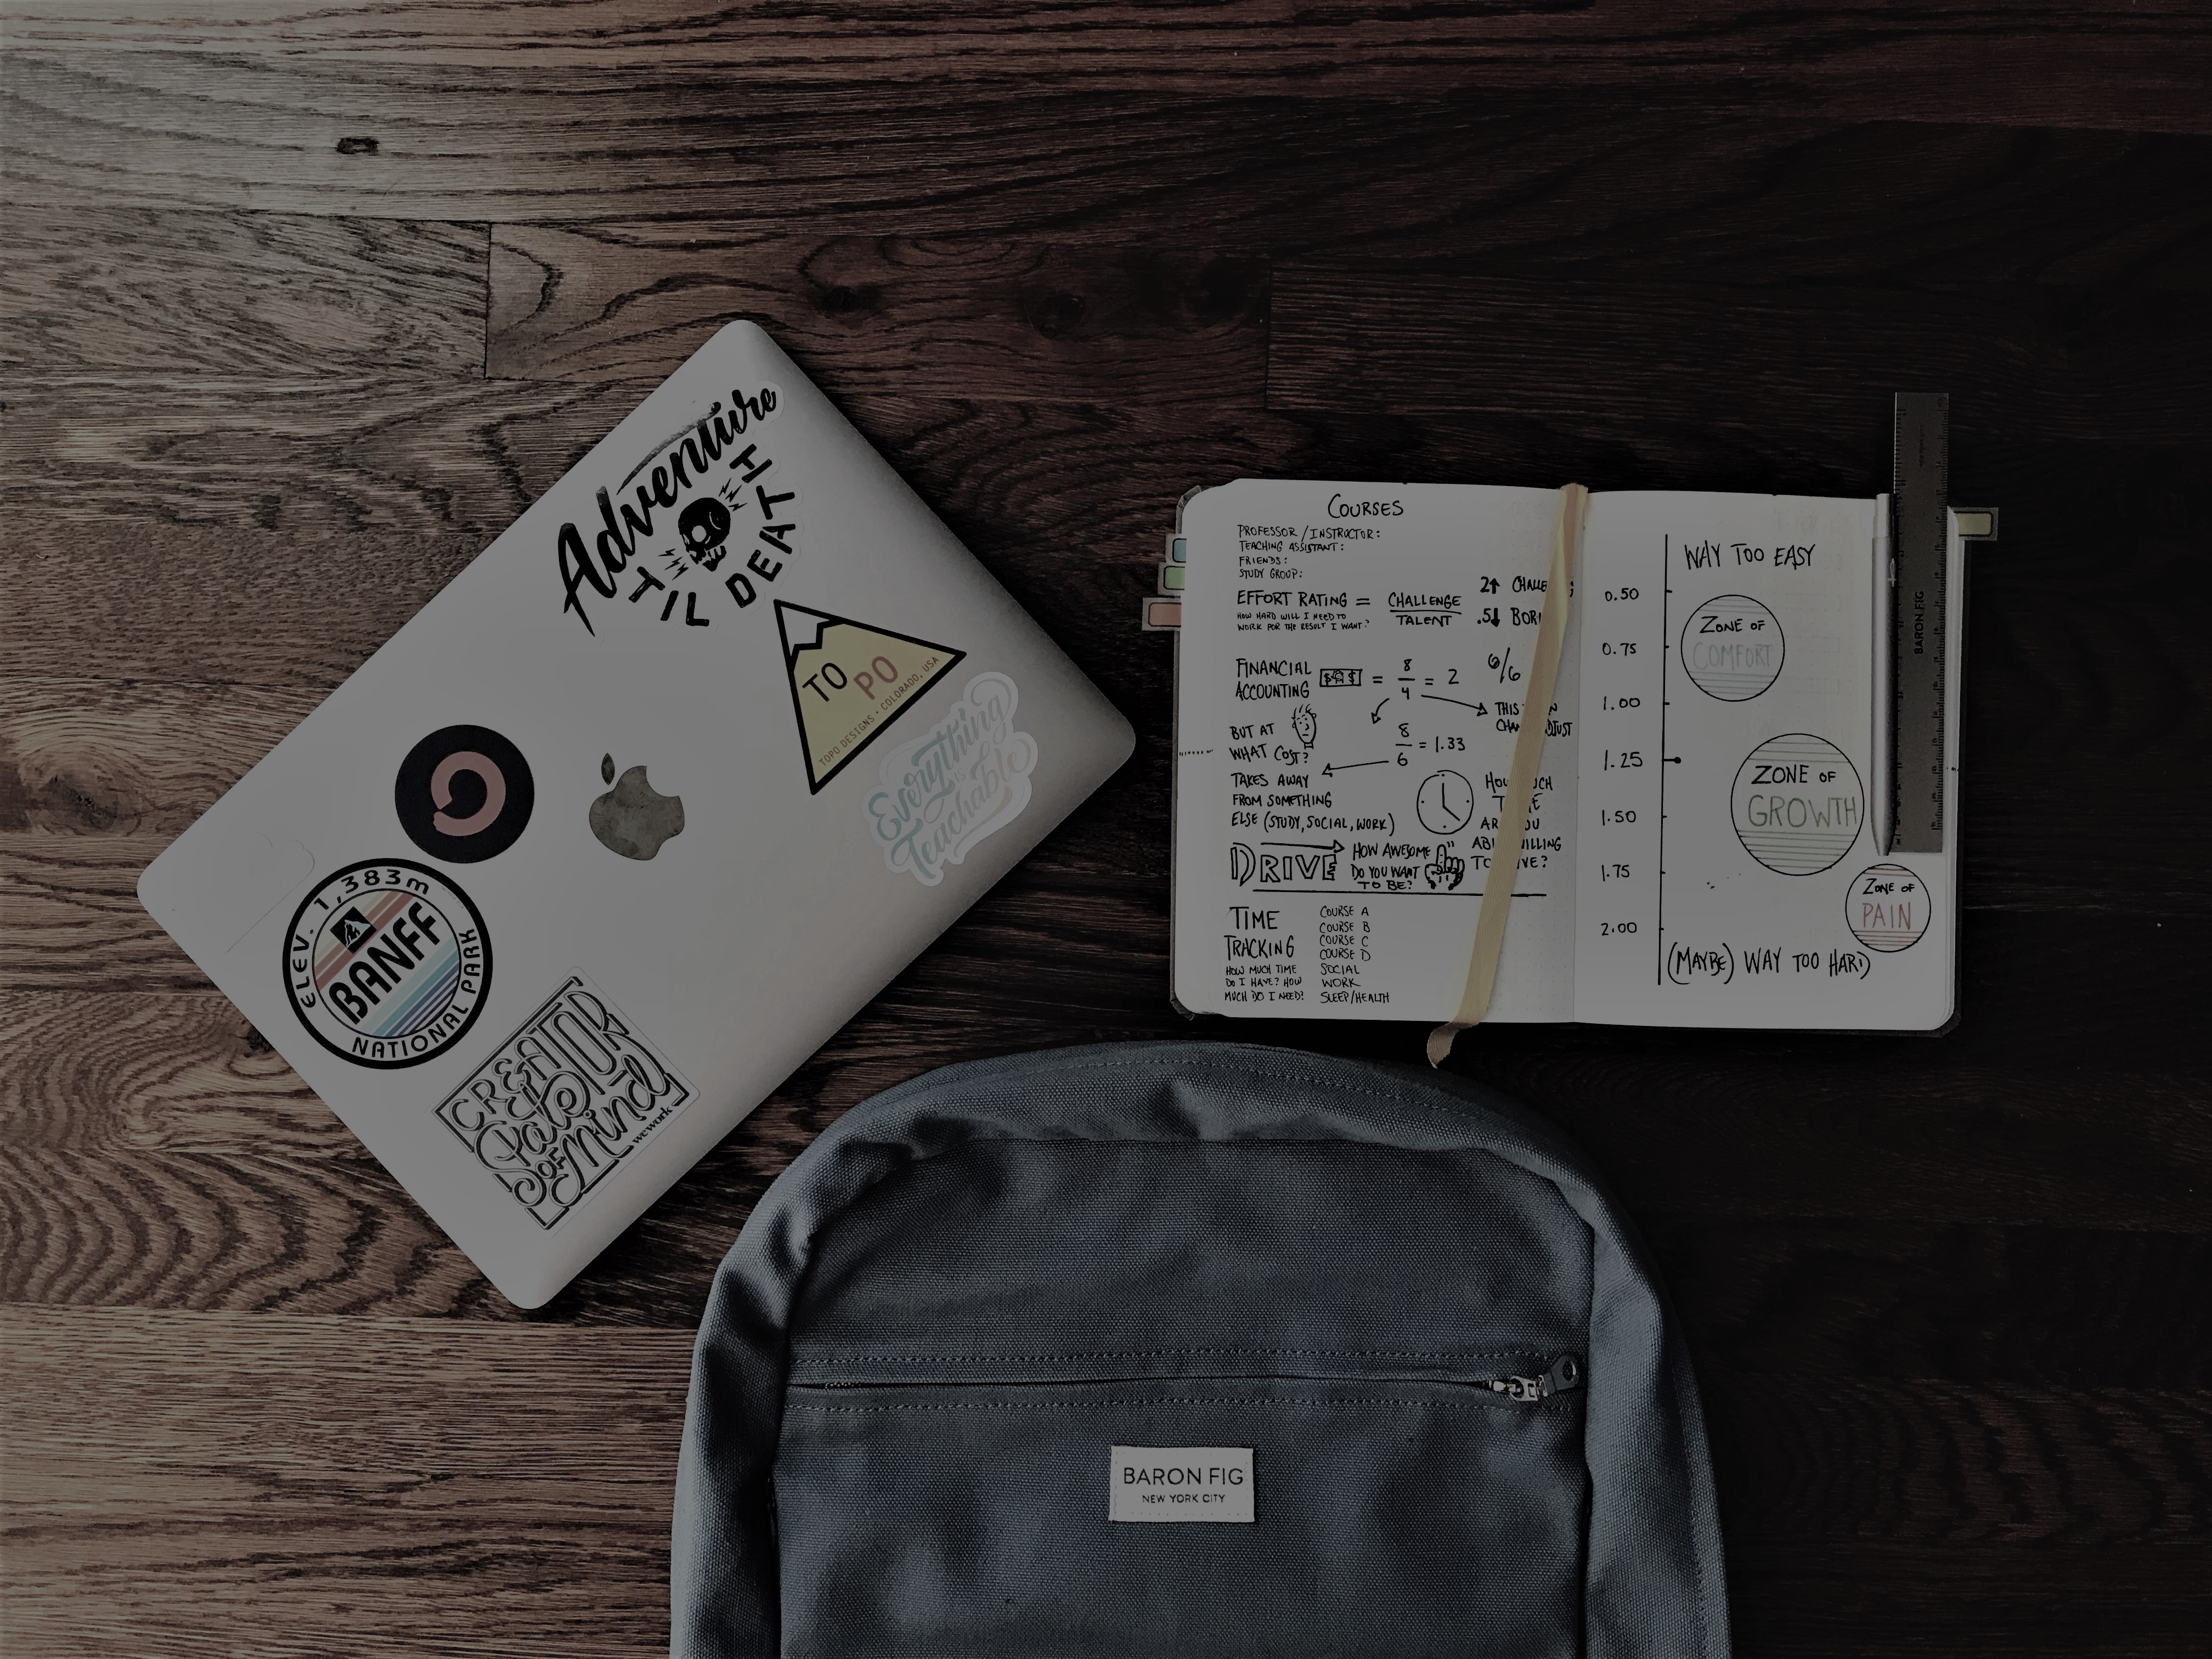 Adventure
TIL DEATH
TO
PO
TOPO DESIGNS · COLORADO, USA
Everything
is
Teachable
ELEV. 1,383m
BANFF
NATIONAL PARK
CREATOR
State
OF Mind
wework
COURSES
PROFESSOR / INSTRUCTOR:
TEACHING ASSISTANT:
FRIENDS:
STUDY GROUP:
EFFORT RATING = CHALLENGE
TALENT
HOW HARD WILL I NEED TO
WORK FOR THE RESULT I WANT?
2↑
.5↓
FINANCIAL
ACCOUNTING
= 8
4
= 2
6/6
BUT AT
WHAT COST?
8
6
= 1.33
THIS
TAKES AWAY
FROM SOMETHING
ELSE (STUDY, SOCIAL, WORK)
DRIVE
HOW AWESOME
DO YOU WANT
TO BE?
TIME
TRACKING
HOW MUCH TIME
DO I HAVE? HOW
MUCH DO I NEED?
COURSE A
COURSE B
COURSE C
COURSE D
SOCIAL
WORK
SLEEP/HEALTH
WAY TOO EASY
0.50
0.75
1.00
1.25
1.50
1.75
2.00
ZONE OF
COMFORT
ZONE OF
GROWTH
ZONE OF
PAIN
(MAYBE) WAY TOO HARD
BARON FIG
BARON FIG
NEW YORK CITY